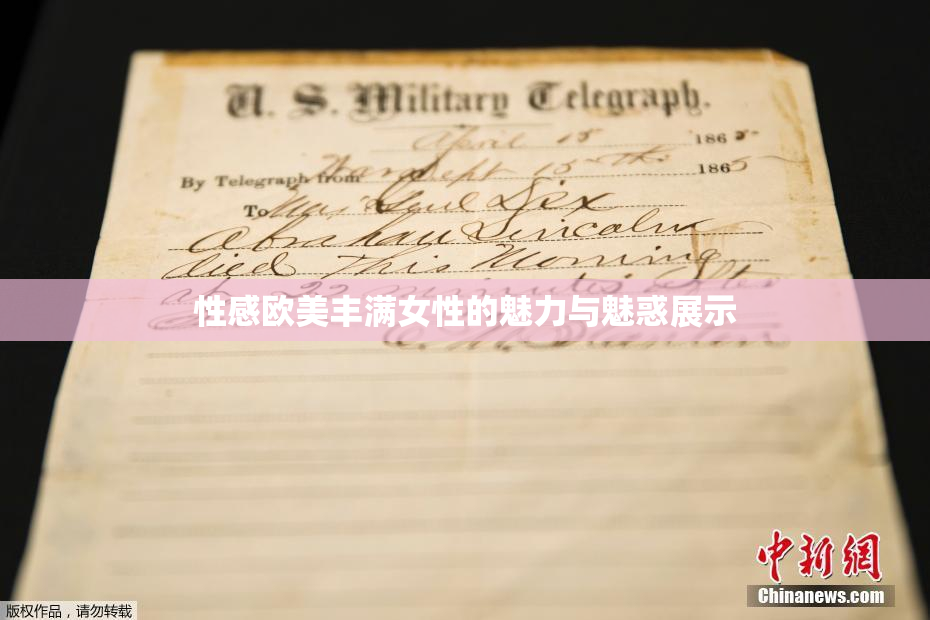 U. S. Military Telegraph.
April 15 1865
By Telegraph from War Dept 15th 1865
To Maj Genl Dix
Abraham Lincoln
died This Morning
at 22 minutes after
性感欧美丰满女性的魅力与魅惑展示
E. M. Stanton
中新网
Chinanews.com
版权作品，请勿转载